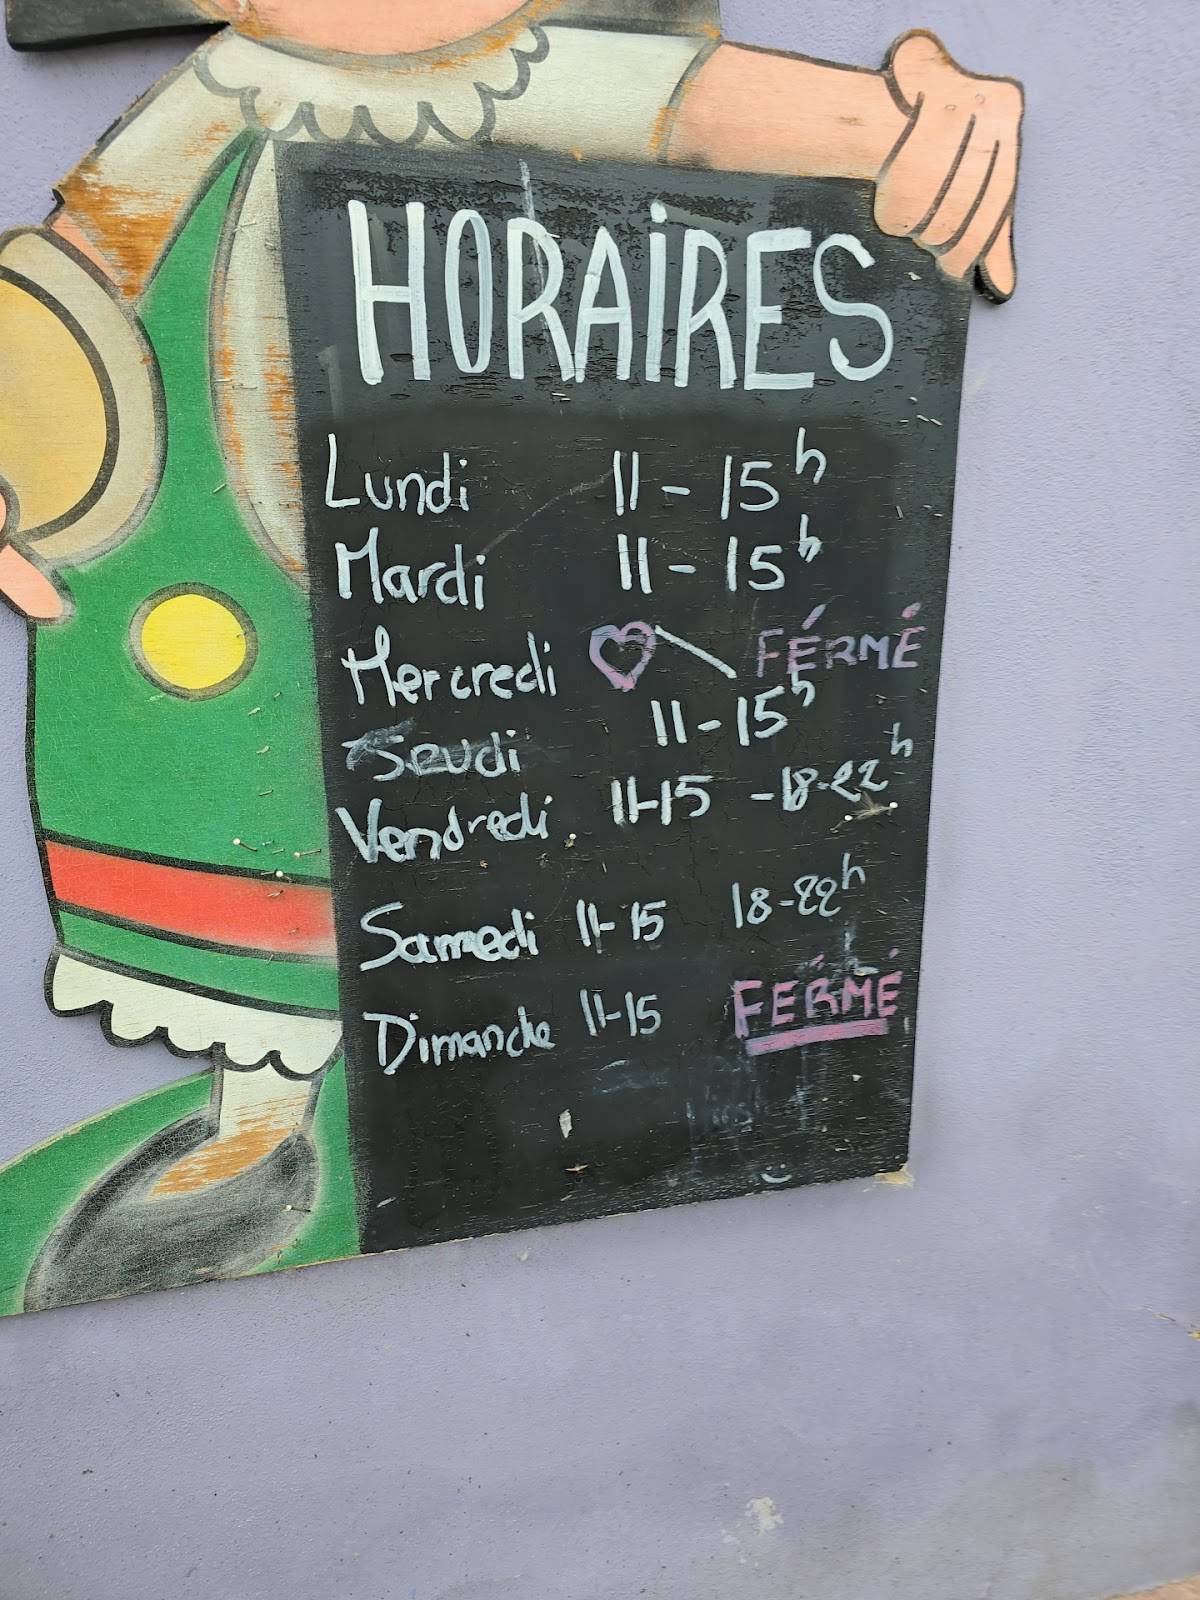 HORAIRES
Lundi 11 - 15h
Mardi 11 - 15h
Mercredi FÉRMÉ
Jeudi 11 - 15h
Vendredi 11-15 - 18-22h
Samedi 11-15 18-22h
Dimanche 11-15 FÉRMÉ